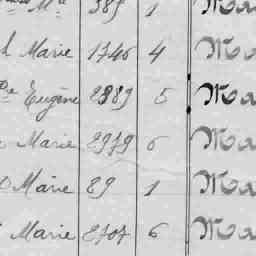 Mie 389 1 Ma
Marie 1746 4 Ma
Eugène 2989 5 Ma
Marie 2979 6 Ma
Marie 89 1 Ma
Marie 2707 6 Ma